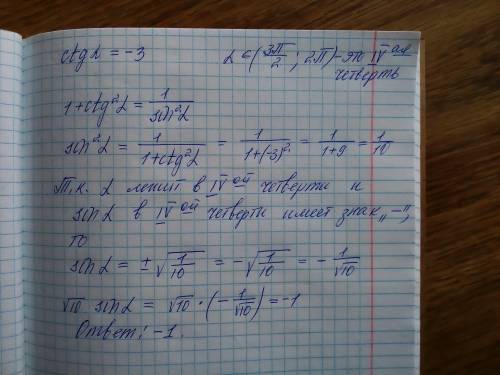 ctg α = -3 α ∈ (3π/2 ; 2π) - это IV ая
четверть
1 + ctg²α = 1/sin²α
sin²α = 1/(1+ctg²α) = 1/(1+(-3)²) = 1/(1+9) = 1/10
Т.к. α лежит в IV ой четверти и
sin α в IV ой четверти имеет знак „-",
то
sin α = ± √(1/10) = - √(1/10) = - 1/√10
√10 sin α = √10 · (- 1/√10) = -1
Ответ: -1.